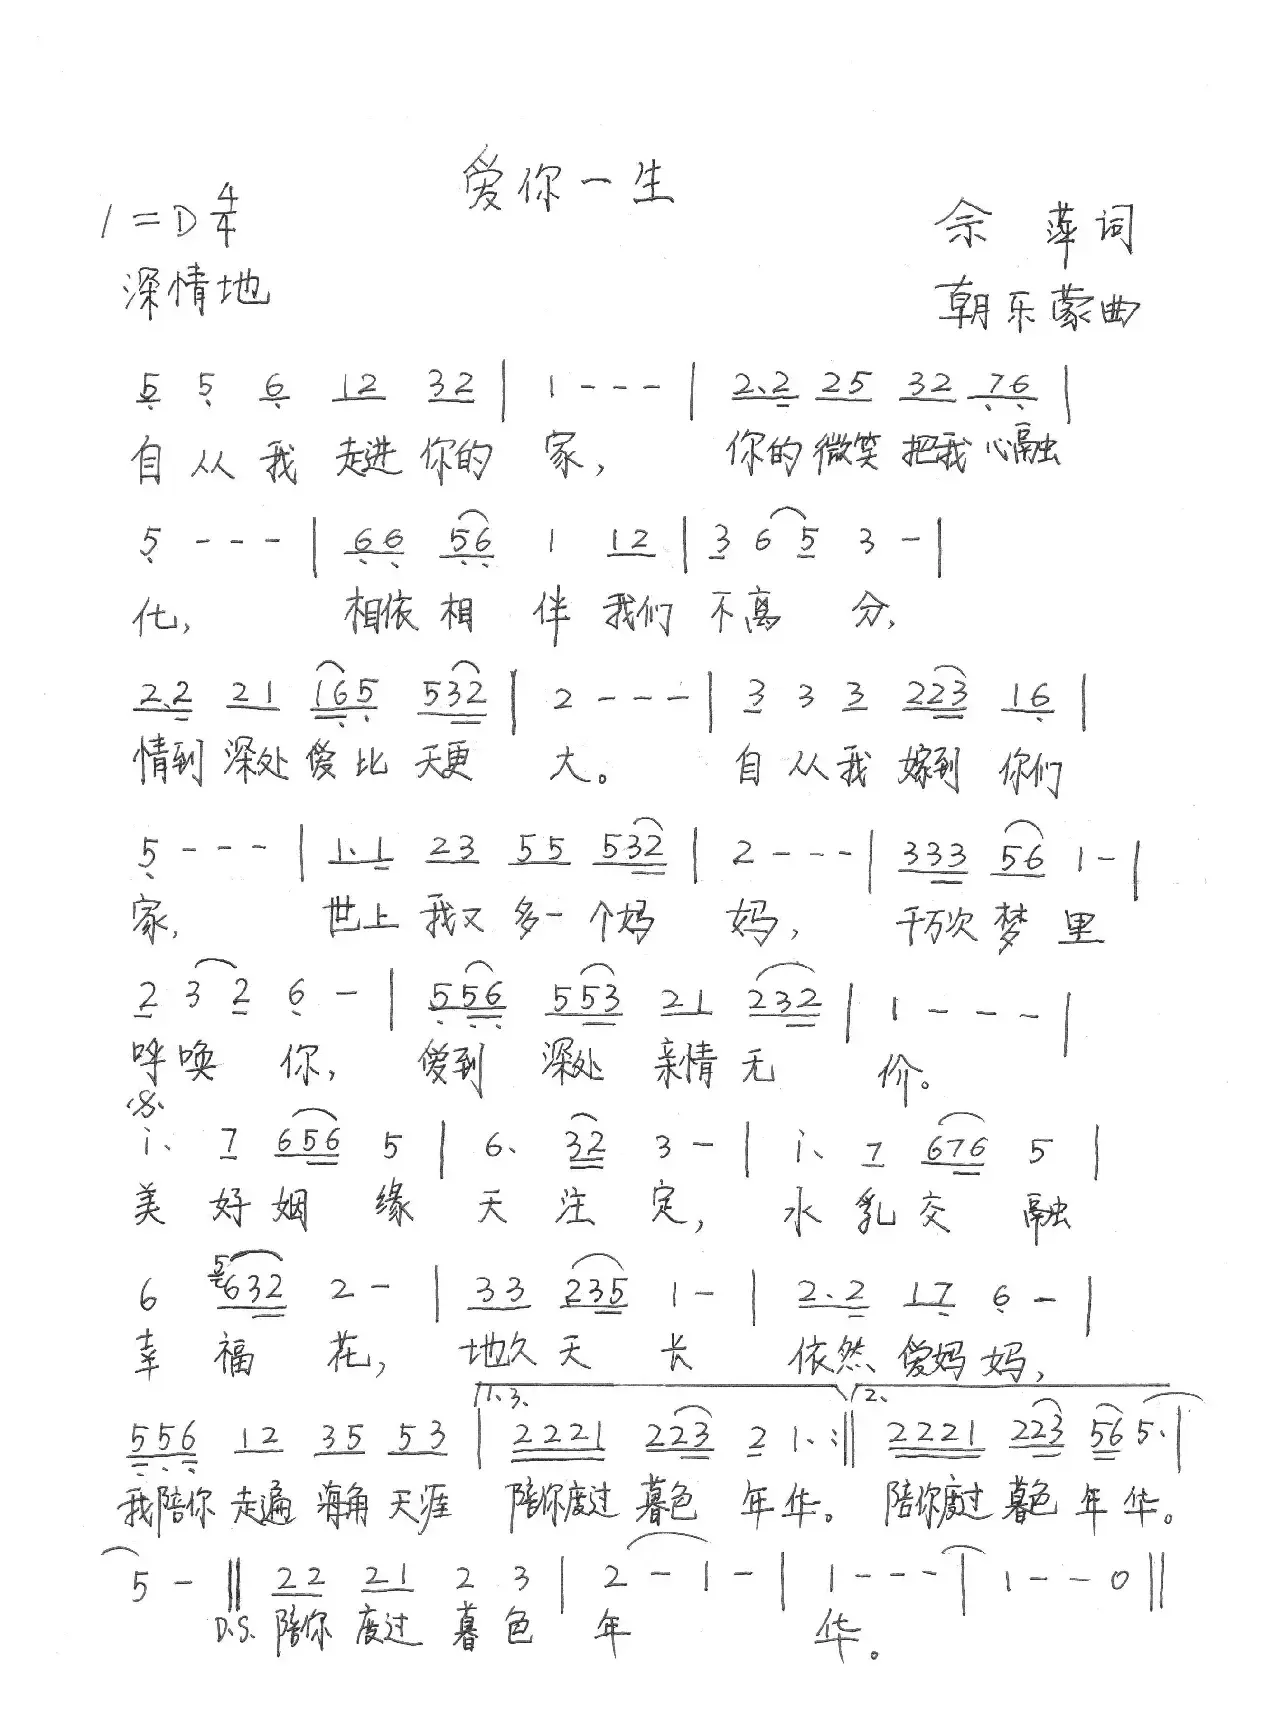 爱你一生
1=D 4/4
佘 萍词
深情地
朝乐蒙曲
5 5 6 12 32 | 1 - - - | 2.2 25 32 76 |
自从我走进你的家, 你的微笑把我心融
5 - - - | 66 56 1 12 | 3 6 5 3 - |
化, 相依相伴我们不离分,
2.2 21 165 532 | 2 - - - | 3 3 3 223 16 |
情到深处爱比天更大。 自从我嫁到你们
5 - - - | 1.1 23 55 532 | 2 - - - | 333 56 1 - |
家, 世上我又多一个妈妈, 千万次梦里
2 3 2 6 - | 556 553 21 232 | 1 - - - |
呼唤你, 爱到深处亲情无价。
i. 7 656 5 | 6. 32 3 - | i. 7 676 5 |
美好姻缘天注定, 水乳交融
6 5632 2 - | 33 235 1 - | 2.2 17 6 - |
幸福花, 地久天长 依然爱妈妈,
1.3. 2.
556 12 35 53 | 2221 223 2 1. :‖ 2221 223 56 5. |
我陪你走遍海角天涯 陪你度过暮色年华。 陪你度过暮色年华。
5 - ‖ 22 21 2 3 | 2 - 1 - | 1 - - - | 1 - - 0 ‖
D.S. 陪你度过暮色年 华。